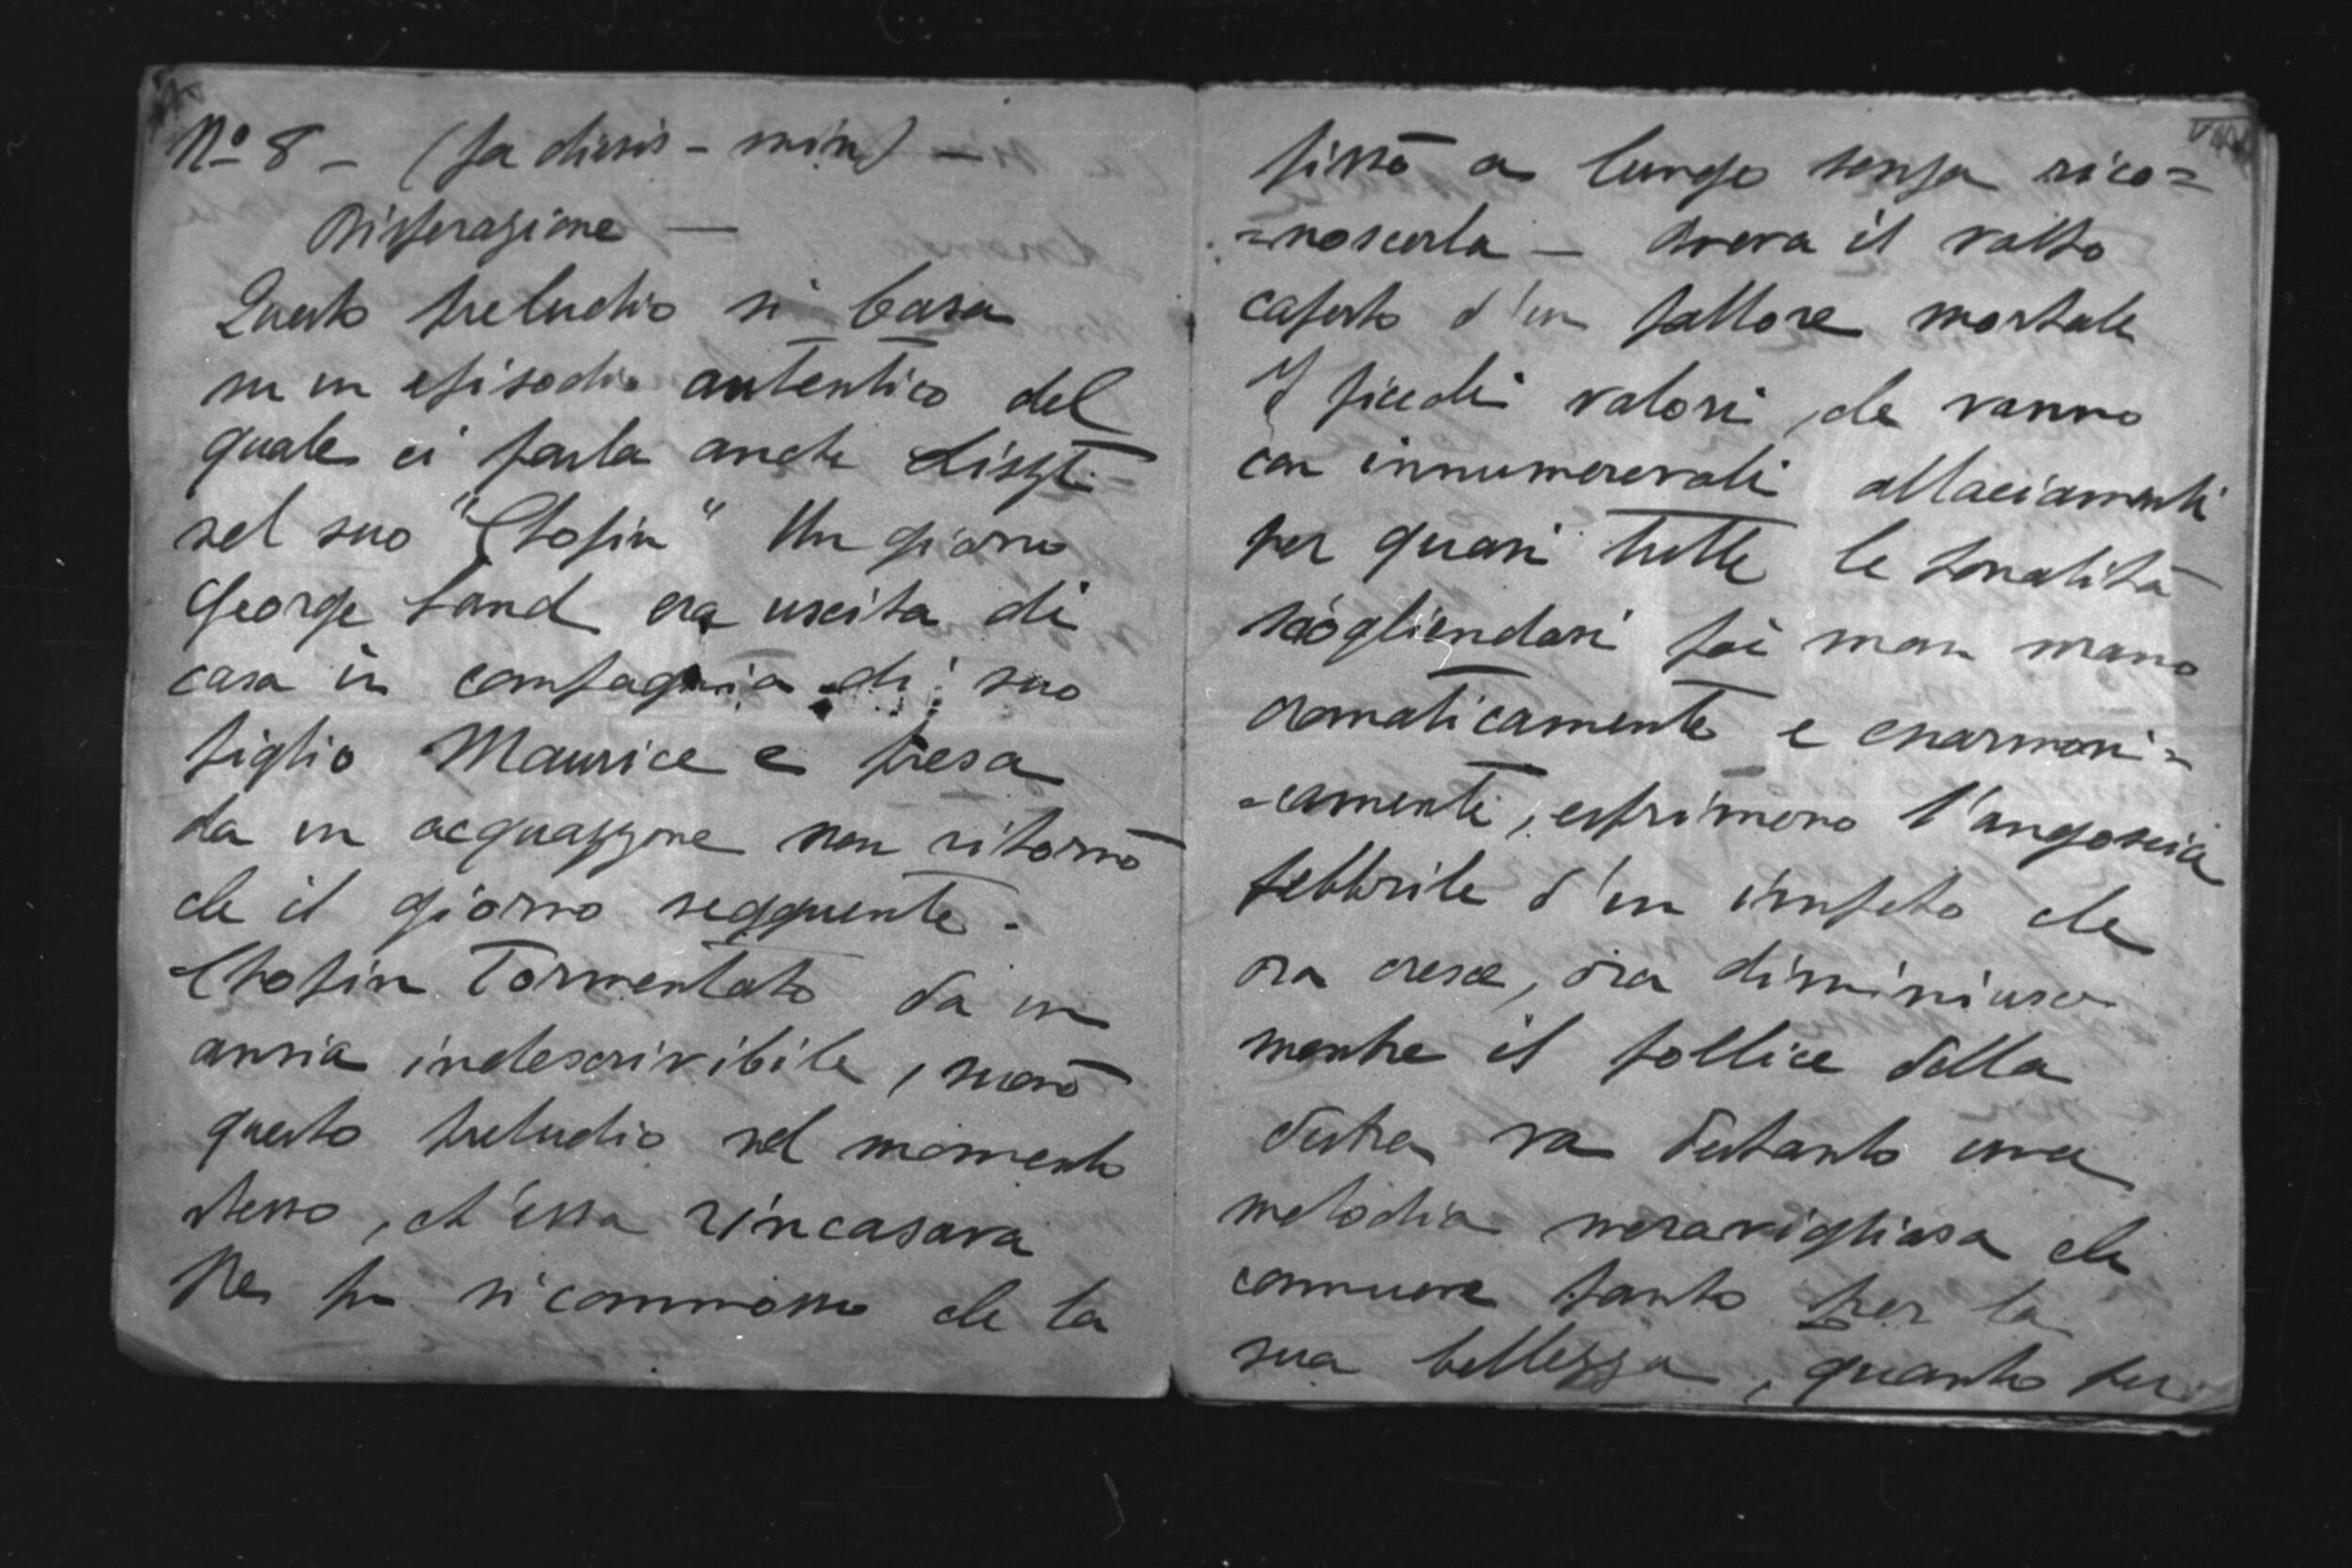 Nº 8 – (fa diesis – min) –
Disperazione –
Questo preludio si basa
su un episodio autentico del
quale ci parla anche Liszt
nel suo "Chopin" Un giorno
George Sand era uscita di
casa in compagnia di suo
figlio Maurice e presa
da un acquazzone non ritornò
che il giorno segguente.
Chopin tormentato da un
ansia indescrivibile, suonò
questo preludio nel momento
stesso, ch'essa rincasava
Ne fu si commosso che la
fissò a lungo senza rico=
=noscerla – Aveva il volto
coperto d'un pallore mortale
I piccoli valori, che vanno
con innumerevoli allacciamenti
per quasi tutte le tonalità
sciogliendosi poi man mano
cromaticamente e enarmoni=
=camente, esprimono l'angoscia
febbrile d'un impeto che
ora cresce, ora diminiusce
mentre il pollice della
destra va destando una
melodia meravigliosa che
commuove tanto per la
sua bellezza, quanto per